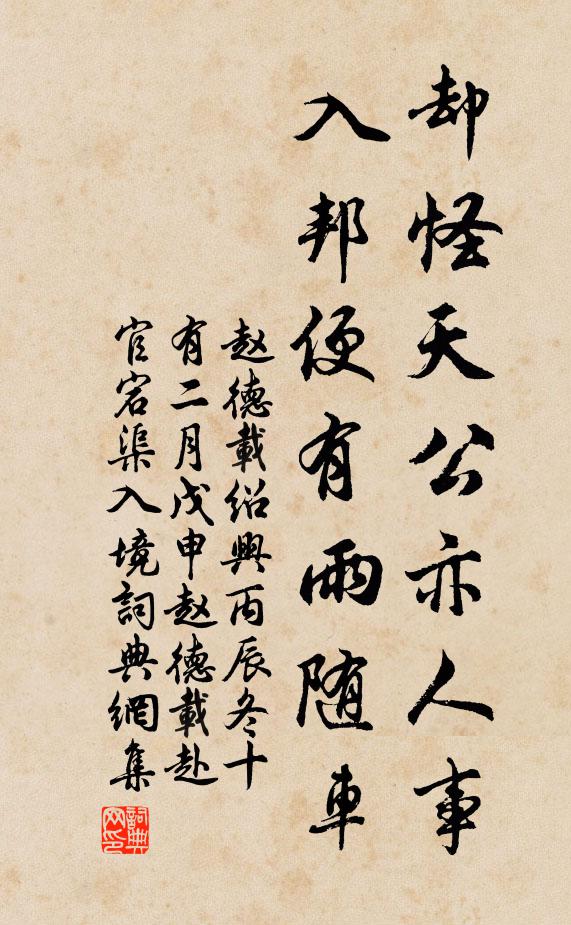 却怪天公亦人事
入邦便有雨随車
赵德載绍興丙辰冬十
有二月戊申赵德載赴
官宕渠入境詞典網集
詞典网印